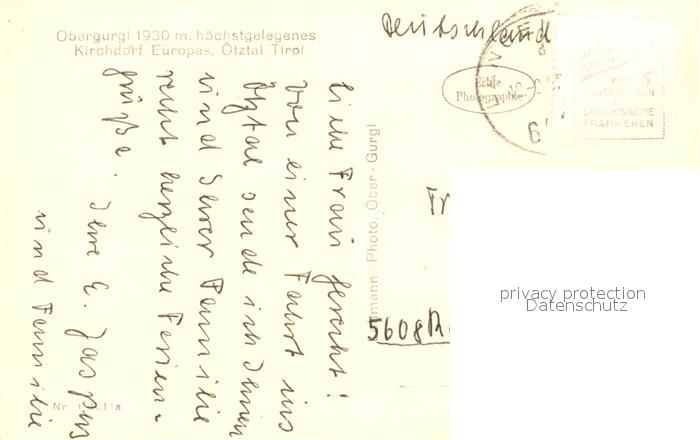 Obergurgl 1930 m. höchstgelegenes
Kirchdorf Europas, Ötztal Tirol
Deutschland
Echte
Photographie
DRUCKSACHE
FRANKIEREN
Liebe Frau
von einer Fahrt ins
Ötztal sende ich Ihnen
und Ihrer Familie
recht herzliche Ferien-
grüße. Ihre E. Jaspers
und Familie
mann - Photo. Ober-Gurgl
Fr
5608 R
privacy protection
Datenschutz
Nr.